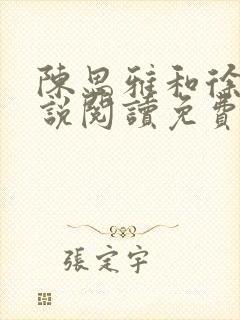 陳思雅和徐
說閱讀免費
張定宇